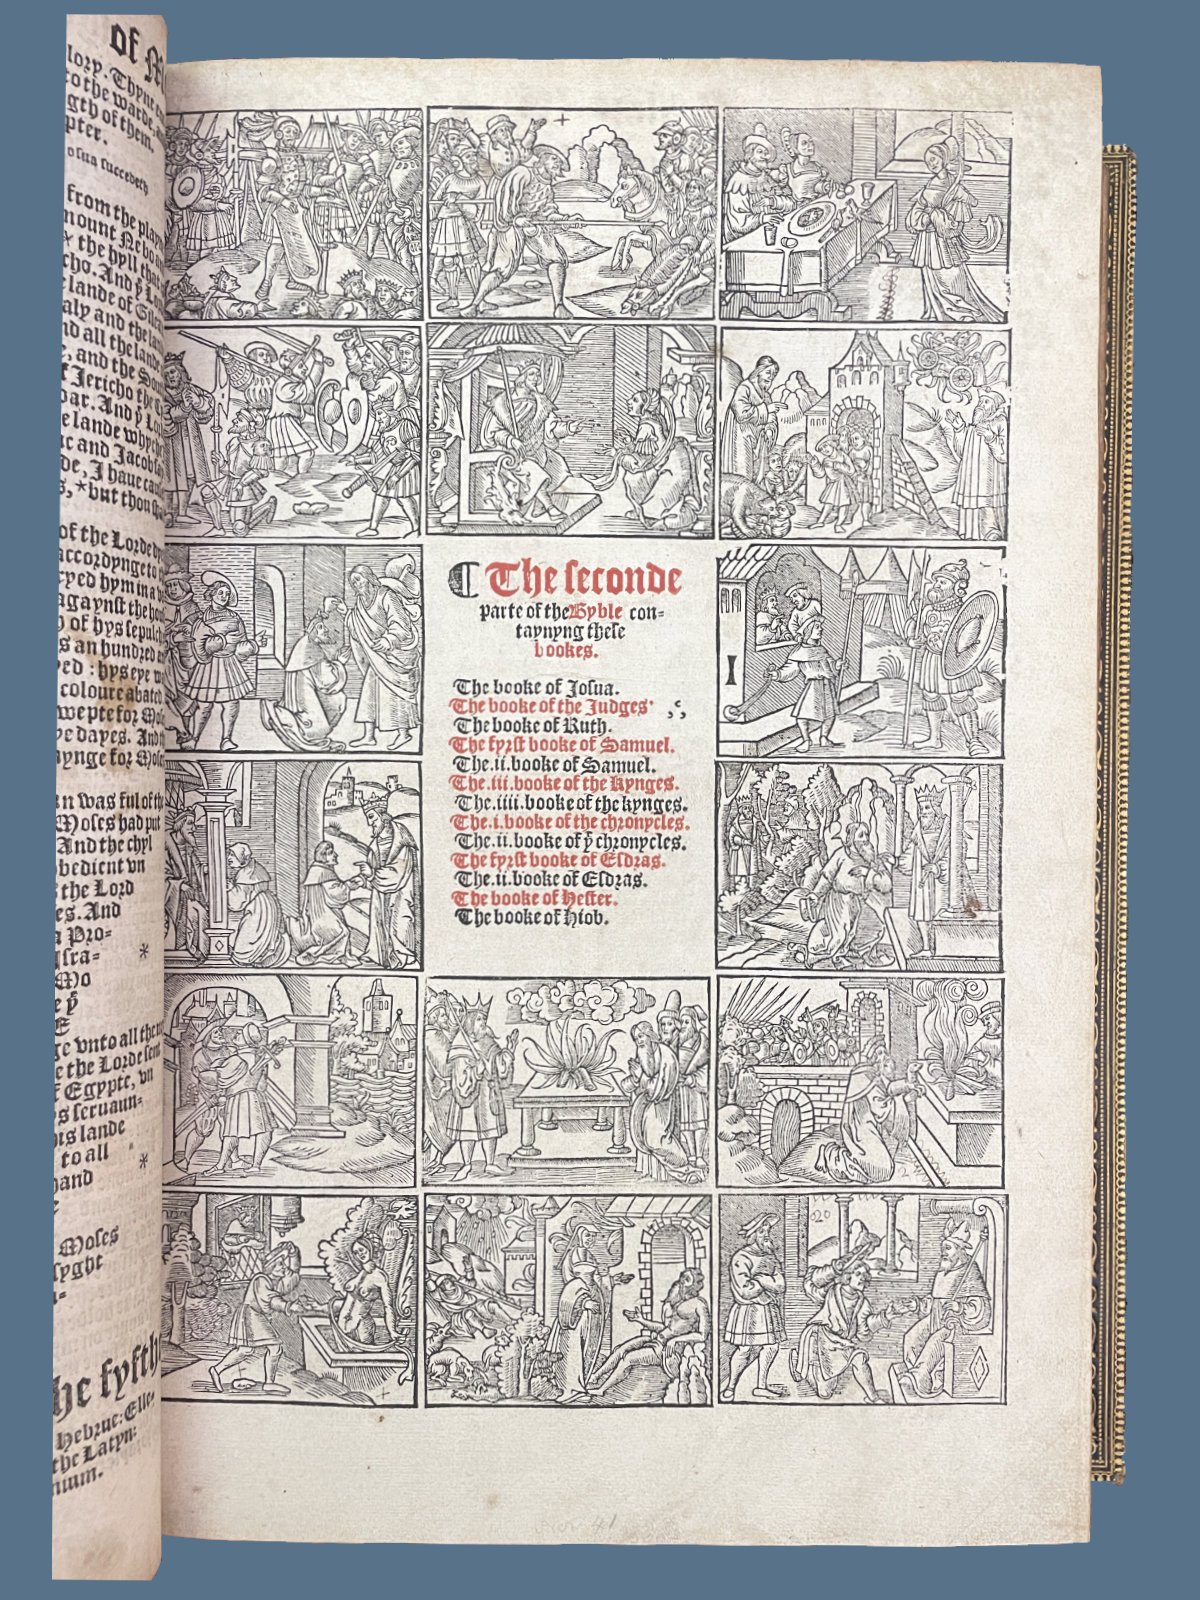 of
lory. Thyne
to the warde,
gth of them.
pter.
osua succedeth
from the playne
mount Nebo
* the hyll that
cho. And yͤ Lor
lande of Gilea
aly and the lan
nd all the lande
, and the Sou
f Jericho the
oar. And yͤ Lor
e lande whyche
ac and Jacob
de, I haue cau
s, * but thou sha
of the Lorde
accordynge to
ryed hym in a
agaynst the hou
of hys sepulch
s an hundred an
yed : hys eye
coloure abated
wepte for Mose
ye dayes. And th
ynge for Mose
un was ful of the
Moses had put
And the chyl
obedient vn
s the Lord
es. And
a Pro-
Isra- *
Mo
e yͤ
E
ge vnto all the
e the Lorde sent
f Egypte, vn
ys seruaun-
hts lande
to all
hand *
Moses
syght
he fyfth
Hebrue: Elle-
the Latyn:
nium.
¶ The seconde
parte of the Byble con-
taynyng these
bookes.
The booke of Josua.
The booke of the Judges
The booke of Ruth.
The fyrst booke of Samuel.
The .ii. booke of Samuel.
The .iii. booke of the Kynges.
The .iiii. booke of the kynges.
The .i. booke of the chronycles.
The .ii. booke of yͤ chronycles.
The fyrst booke of Esdras.
The .ii. booke of Esdras.
The booke of Hester.
The booke of Hiob.